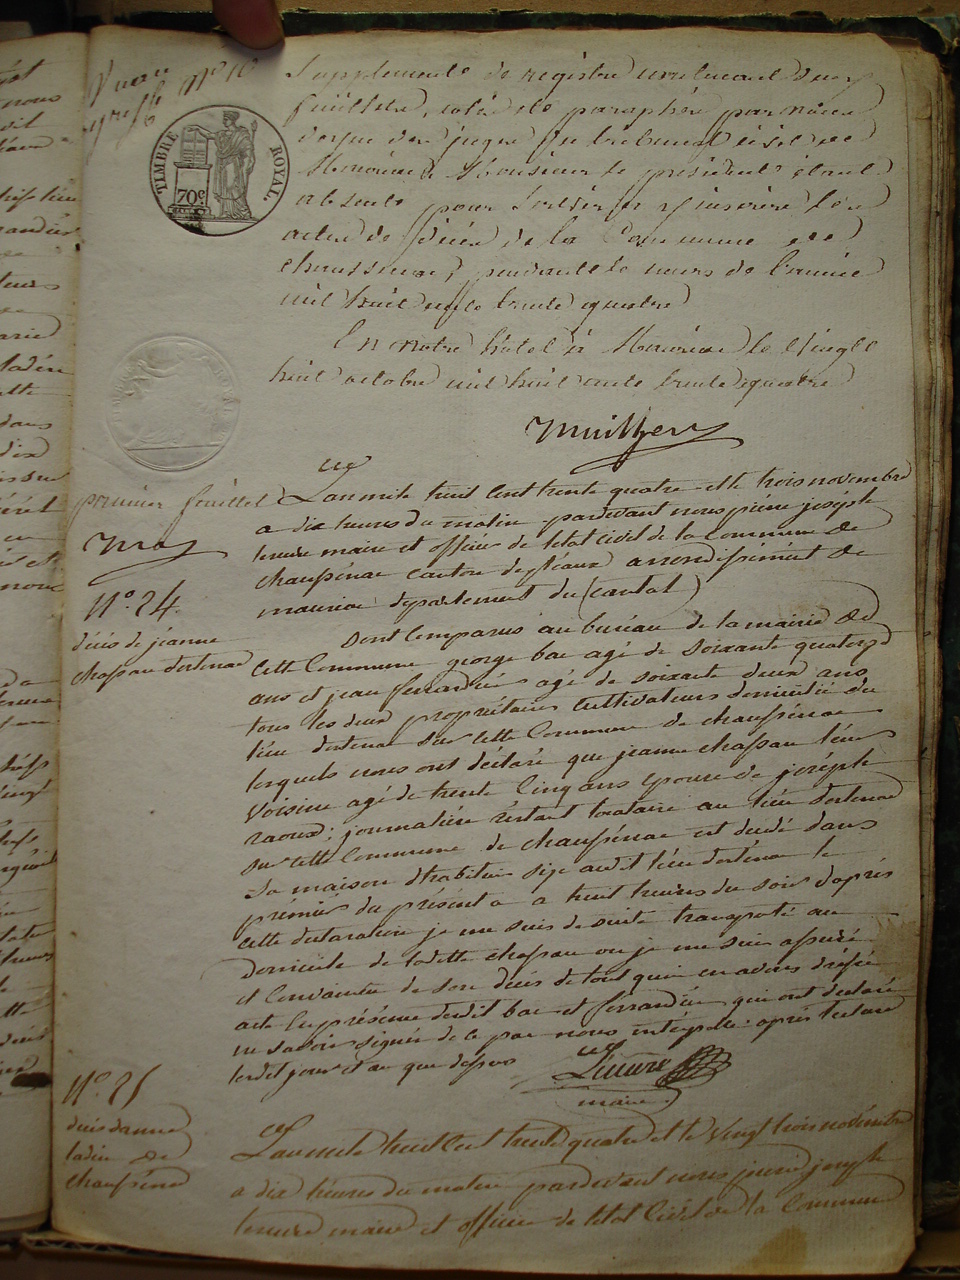 Supplement de registre contenant deux
feuillets, coté et paraphé par nous
doyen des juges du tribunal civil de
Mauriac, Monsieur le président étant
absent, pour servir à inscrire les
actes de décès de la Commune de
chaussenac, pendant le cours de l'année
mil huit cent trente quatre
En notre hôtel à Mauriac le vingt
huit octobre mil huit cent trente quatre
TIMBRE ROYAL.
70c
premier feuillet
N°. 24
décès de jeanne
chassau destenac
L'an mile huit cent trente quatre et le trois novembre
a dix heures du matin pardevant nous pierre joséph
maire et officier de létat civil de la Commune de
chaussénac canton de pleaux arrondissement de
mauriac département du (cantal)
Sont Comparus au bureau de la mairie de
cette Commune george bac agé de soixante quatorze
ans et jean ferrandié agé de soixante deux ans
tous les deux propriétaires cultivateurs domicilié du
lieu destenac sur cette Commune de chaussénac
lesquels nous ont déclaré que jeanne chassau leur
Voisine agé de trente cinq ans epouse de joséph
raoux, journalière restant locataire au lieu destenac
sur cette Commune de chaussénac est decédé dans
sa maison d'habitation size audit lieu desténac le
prémier du présent a huit heures du soir d'après
cette declaration je me suis de suite transporté au
domicile de ladette chassau ou je me suis assuré
et Convaincu de son décés de tout quoi en avons dréssé
acte En présence desdit bac et ferrandié qui ont declaré
ne savoir signer de ce par nous intérpelé après lecture
lesdit jour et an que dessus
maire
N°. 25
décès danne
de
chaussénac
L'an mile huit cent trente quatre et le vingt trois novémbre
a dix heures du matin pardevant nous pierre joseph
maire et officier de létat Civil de la Commune